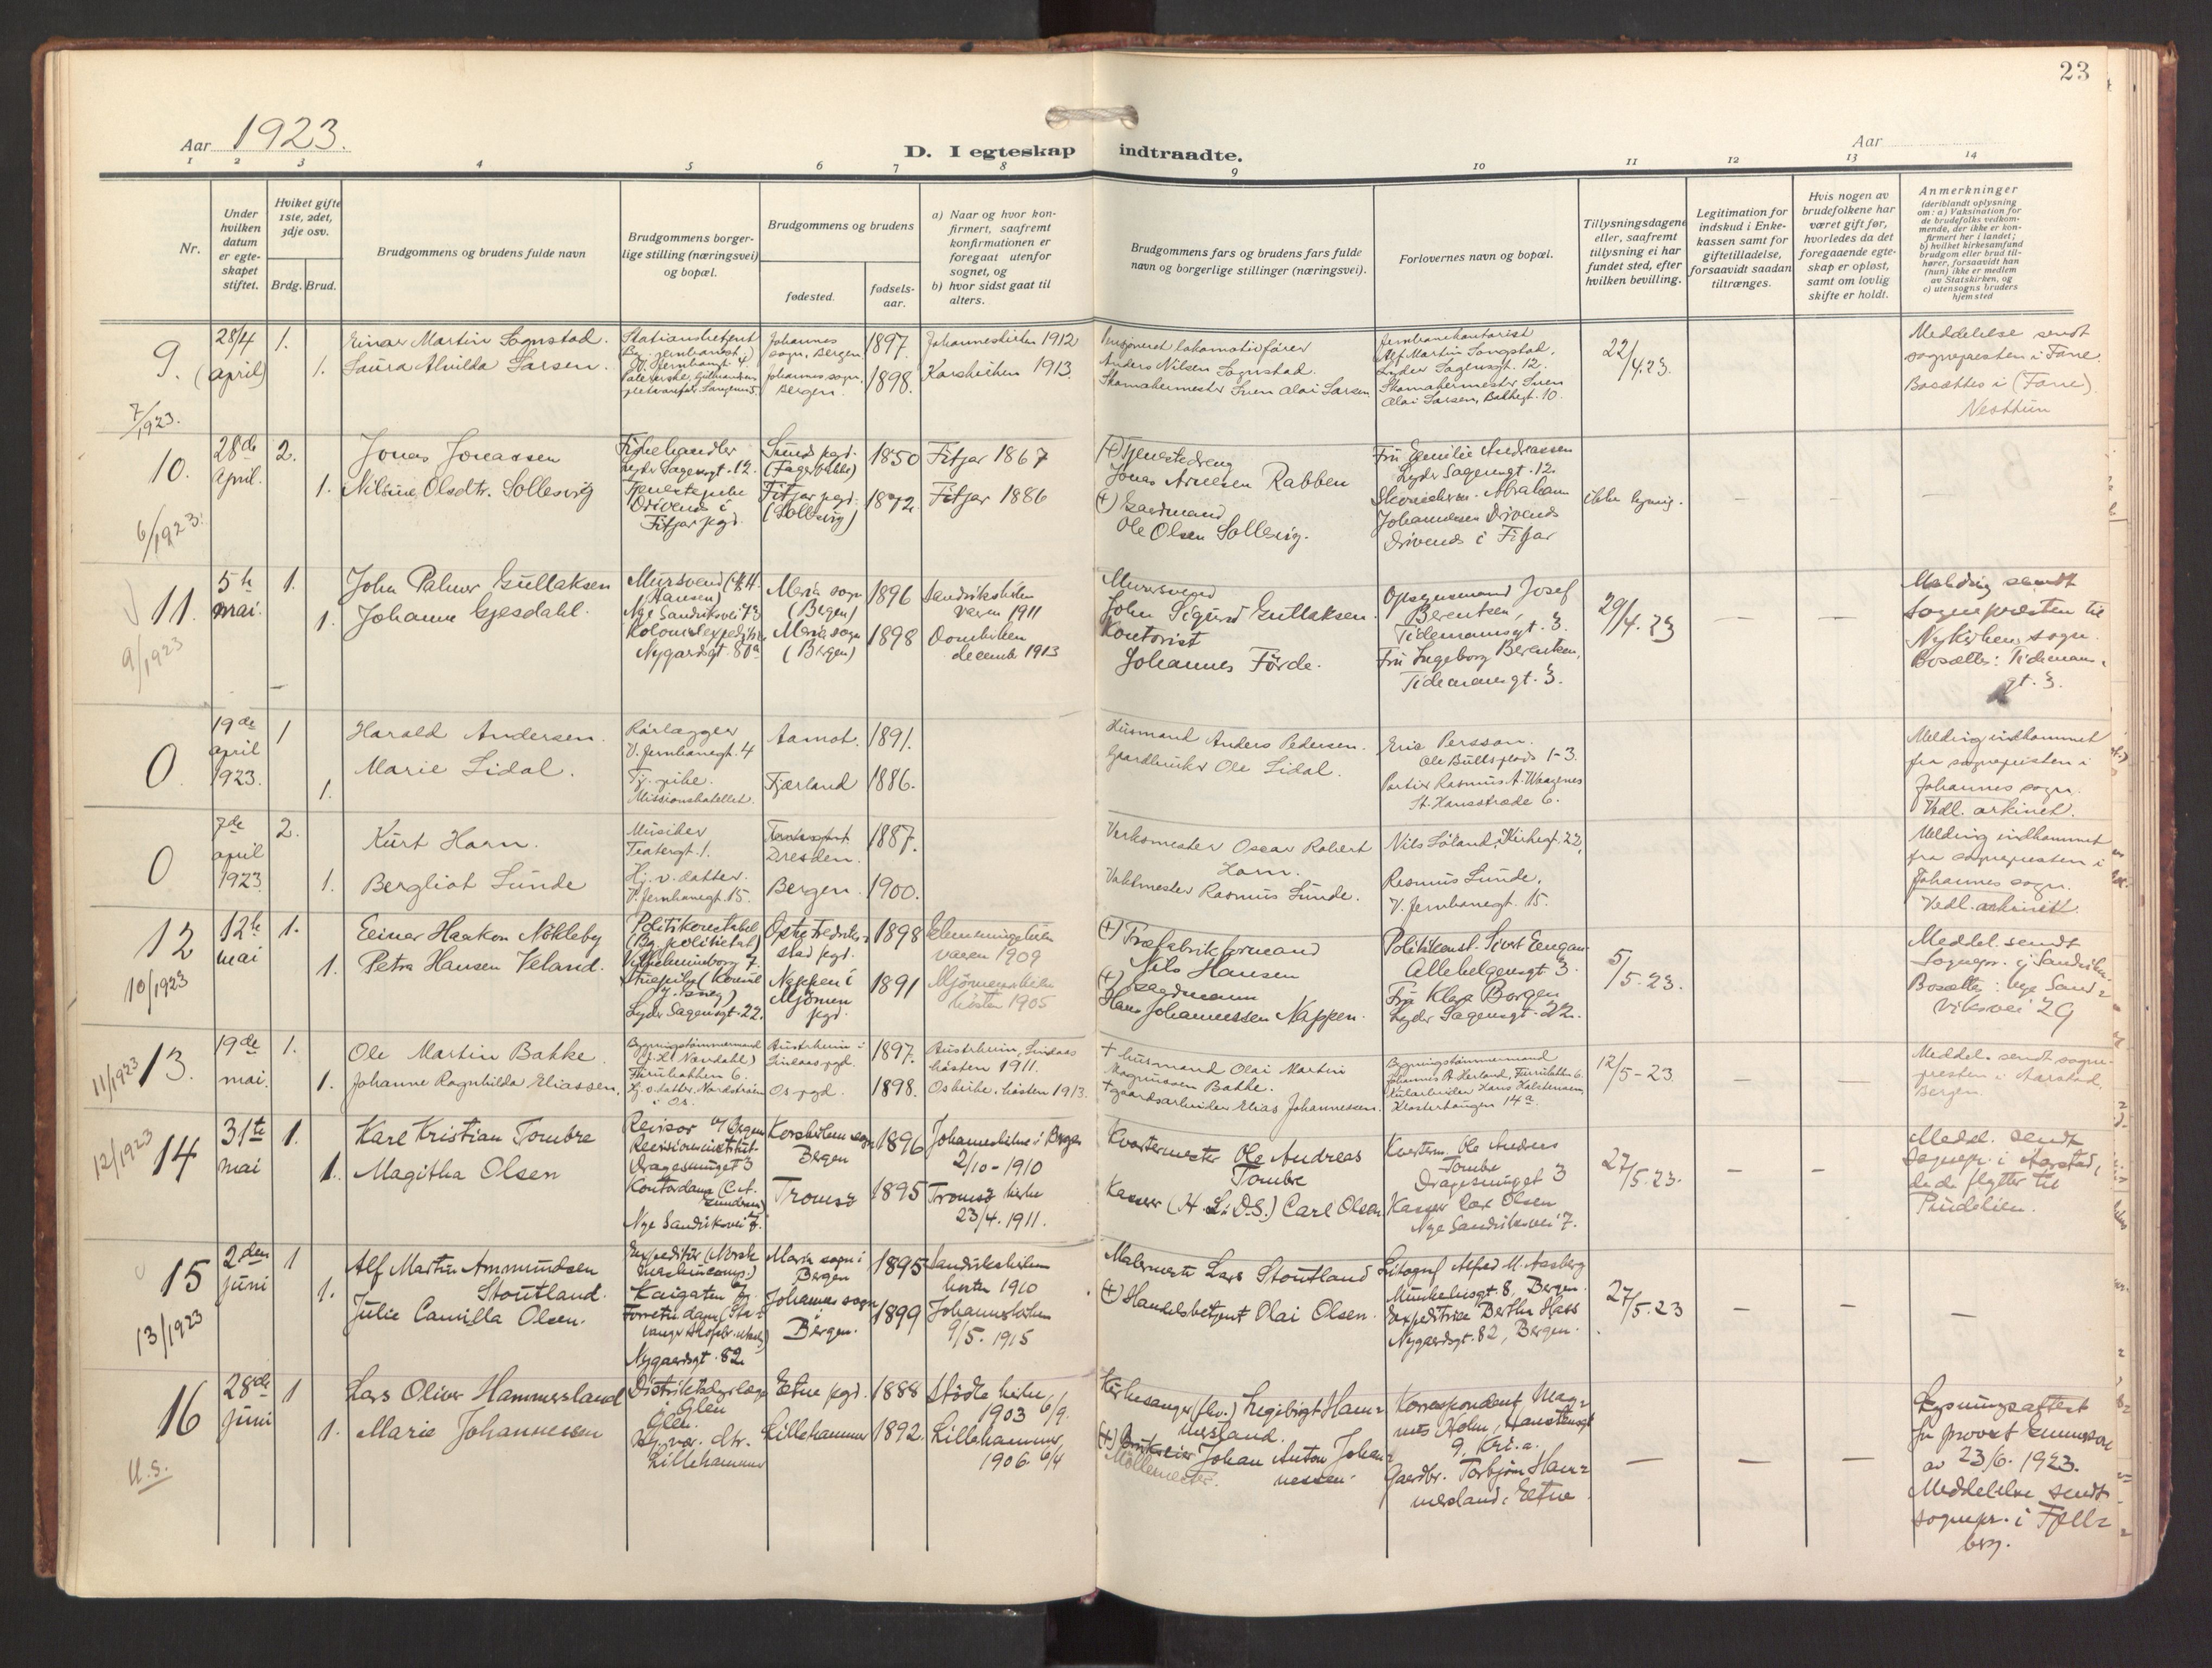 23
Aar 1923.
D. I egteskap indtraadte.
Aar
1 2 3 4 5 6 7 8 9 10 11 12 13 14
Nr.
Under
hvilken
datum
er egte-
skapet
stiftet.
Hviket gifte
1ste, 2det,
3dje osv.
Brdg. Brud.
Brudgommens og brudens fulde navn
Brudgommens borger-
lige stilling (næringsvei)
og bopæl.
Brudgommens og brudens
fødested.
fødsels-
aar.
a) Naar og hvor kon-
firmert, saafremt
konfirmationen er
foregaat utenfor
sognet, og
b) hvor sidst gaat til
alters.
Brudgommens fars og brudens fars fulde
navn og borgerlige stillinger (næringsvei).
Forlovernes navn og bopæl.
Tillysningsdagene
eller, saafremt
tillysning ei har
fundet sted, efter
hvilken bevilling.
Legitimation for
indskud i Enke-
kassen samt for
giftetilladelse,
forsaavidt saadan
tiltrænges.
Hvis nogen av
brudefolkene har
været gift før,
hvorledes da det
foregaaende egte-
skap er opløst,
samt om lovlig
skifte er holdt.
Anmerkninger
(deriblandt oplysning
om: a) Vaksination for
de brudefolks vedkom-
mende, der ikke er kon-
firmert her i landet;
b) hvilket kirkesamfund
brudgom eller brud til-
hører, forsaavidt han
(hun) ikke er medlem
av Statskirken, og
c) utensogns bruders
hjemsted
9.
7/1923.
28/4
(april)
1.
1.
Einar Martin Sognstad.
Laura Alvilda Larsen.
Stationsbetjent
Johannes
sogn, Bergen
1897.
Johannes sogn,
Bergen.
1898.
Johanneskirken 1912
Korskirken 1913.
Pensjoneret lokomotivfører
Anders Nilsen Sognstad.
Skomakermester Sven Olai Larsen
Jernbanekontorist
Alf Martin Songstad,
Lyder Sagensgt. 12.
Skomakermester Sven
Olai Larsen, Bakkegt. 10.
22/4.23.
Meddelelse sendt
sognepresten i Fane.
Bosættes i (Fane)
Nesttun
10.
6/1923.
28de
April.
2.
1.
Jonas Jonassen
Nilsine Olsdtr. Sollesvig
Fiskehandler
Lyder Sagensgt. 12.
Tjenestepike
Drivenes i
Fitjar pgd.
Sund pgd.
(Fagerbakke)
1850
Fitjar pgd.
(Sollesvig)
1872.
Fitjar 1867
Fitjar 1886
(+) Tjenestedreng
Jonas Arnesen Rabben
(+) Gaardmand
Ole Olsen Sollesvig.
Fru Emilie Andreassen
Lyder Sagensgt. 12.
Abraham
Johannesen Drivenes
Drivenes i Fitjar
ikke lysning.
–
–
–
11.
9/1923
5te
mai.
1.
1.
John Palmer Gullaksen
Johanne Gjesdahl.
Mursvend (H.H.
Hansen)
Nye Sandviksvei 73
Nygaardsgt. 80a
Maria sogn
(Bergen)
1896
Maria sogn
(Bergen)
1898
Sandvikskirken
vaaren 1911
Domkirken
decembr 1913
Mursvend
John Sigurd Gullaksen.
Kontorist
Johannes Förde.
Opsynsmand Josef
Berentsen,
Tidemansgt. 3.
Fru Ingeborg Berentsen,
Tidemansgt. 3.
29/4.23
–
–
Melding sendt
sognepresten til
Nykirkens sogn.
Bosættes: Tidemans-
gt. 3.
0.
19de
april
1923.
1
1.
Harald Andersen.
Marie Lidal.
Rørlægger
V. Jernbanegt. 4
Tj. pike.
Missionshotellet.
Aamot.
1891.
Fjærland
1886.
Husmand Anders Pedersen.
Gaardbruker Ole Lidal.
Eric Persson.
Ole Bullsplads 1-3.
Portier Rasmus A. Waagenes
St. Hansstræde 6.
Melding indkommet
fra sognepresten i
Johannes sogn.
Vedl. arkivet.
0
7de
april
1923.
2.
1.
Kurt Horn.
Bergliot Sunde
Musiker
Teatergt. 1.
Hj. v. datter.
V. Jernbanegt. 15.
Dresden.
1887.
Bergen.
1900.
Verksmester Oscar Robert
Horn.
Vaktmester Rasmus Sunde.
Nils Löland, Kirkegt. 22,
Rasmus Sunde,
V. Jernbanegt. 15.
Melding indkommet
fra sognepresten i
Johannes sogn.
Vedl. arkivet.
12
10/1923
12te
mai
1.
1.
Einar Haakon Nökleby
Petra Hansen Veland.
Politikonstabel
(Bg. politietat)
Lyder Sagensgt. 22.
1898
Nappen i
Mjömen
pgd.
1891
vaaren 1909
hösten 1905
(+) Træfabrikformand
Nils Hansen
(+) Gaardmann
Hans Johannessen Nappen.
Politikonst. Sivert Eengan
Allehelgensgt 3.
Fru Klara Borgen
Lyder Sagensgt. 22.
5/5-23.
–
–
Meddel. sendt
Sognepr. i Sandviken.
Bosættes: Nye Sand-
viksvei 29
13.
11/1923
19de
mai.
1.
1.
Ole Martin Bakke.
Johanne Ragnhilda Eliassen.
Bygningstømmermand
Furubakken 6.
Hj. v. datter. Nordstrøm
i Os.
Austrheim i
Lindaas pgd.
1897.
Os pgd.
1898.
Austrheim, Lindaas
høsten 1911.
Os kirke, høsten 1913.
+ husmand Olai Martin
Magnussen Bakke.
+ gaardsarbeider Elias Johannessen.
Bygningstømmermand
Johannes A. Herland, Furubakken 6.
Klosterhaugen 14a.
12/5-23.
–
–
Meddel. sendt sogne-
presten i Aarstad,
Bergen.
14
12/1923
31te
mai
1.
1.
Karl Kristian Tombre
Magitha Olsen
Revisor v/ Bergens
Revisionsinstitut.
Dragesmuget 3
Nye Sandviksvei 7.
Korskirkens sogn
Bergen
1896
Tromsø
1895
Johanneskirken i Bergen
2/10-1910
Tromsø kirke
23/4. 1911.
Kvartermester Ole Andreas
Tombre
Kasserer (H.L.D.S.) Carl Olsen
Kvarterm. Ole Andreas
Tombre
Dragesmuget 3
Kasserer Carl Olsen
Nye Sandviksvei 7.
27/5.23.
–
–
Meddel. sendt
sognepr. i Aarstad,
da de flytter til
15
13/1923
2den
juni
1
1.
Alf Martin Ammundsen
Stoutland.
Julie Camilla Olsen.
Expeditør (Norsk
Maskincomp.)
Nygaardsgt. 82.
Maria sogn i
Bergen
1895
Johannes sogn
Bergen.
1899
Sandvikskirken
høsten 1910
Johanneskirken
9/5. 1915
Malermester Lars Stoutland
(+) Handelsbetjent Olai Olsen.
Litograf Alfred M. Aasberg
Munkebusgt. 8, Bergen.
Expeditrice Berthe Hass
Nygaardsgt. 82, Bergen.
27/5.23
–
–
–
16
U.S.
28de
juni
1
1.
Lars Oliver Hammersland
Marie Johannessen
Distriktsdyrlæge
i Ølen
Ølen.
Hj. vær. dtr.
Lillehammer
Etne pgd.
1888
Lillehammer
1892.
Stødle kirke,
1903 6/9.
Lillehammer
1906 6/4
Kirkesanger (fhv.) Ingebrigt Ham-
mersland.
(+) Brukseier Johan Anton Johan-
nessen.
Møllemester.
Korrespondent Mag-
nus Holm, Hanstensgt
9. Kr.a.
Gaardbr. Torbjørn Ham-
mersland, Etne
–
–
–
Lysningsattest
fra provst
av 23/6. 1923.
Meddelelse sendt
sognepr. i Fjell-
berg.